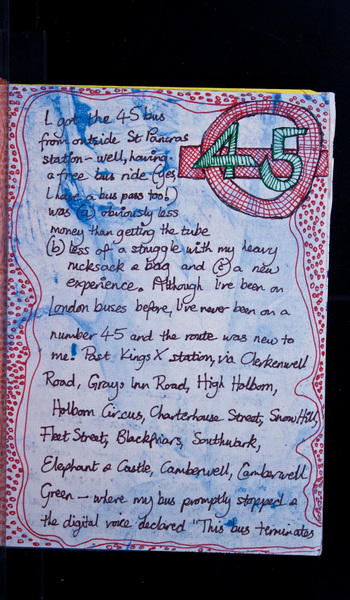 I got the 45 bus
from outside St Pancras
station - well, having
a free bus ride (yes
I have a bus pass too!)
was (a) obviously less
money than getting the tube
(b) less of a struggle with my heavy
rucksack & bag and (c) a new
experience. Although I've been on
London buses before, I've never been on a
number 45 and the route was new to
me! Past Kings X station, via Clerkenwell
Road, Grays Inn Road, High Holborn,
Holborn Circus, Charterhouse Street, Snow Hill,
Fleet Street, Blackfriars, Southwark,
Elephant & Castle, Camberwell, Camberwell
Green - where my bus promptly stopped &
the digital voice declared "This bus terminates
45